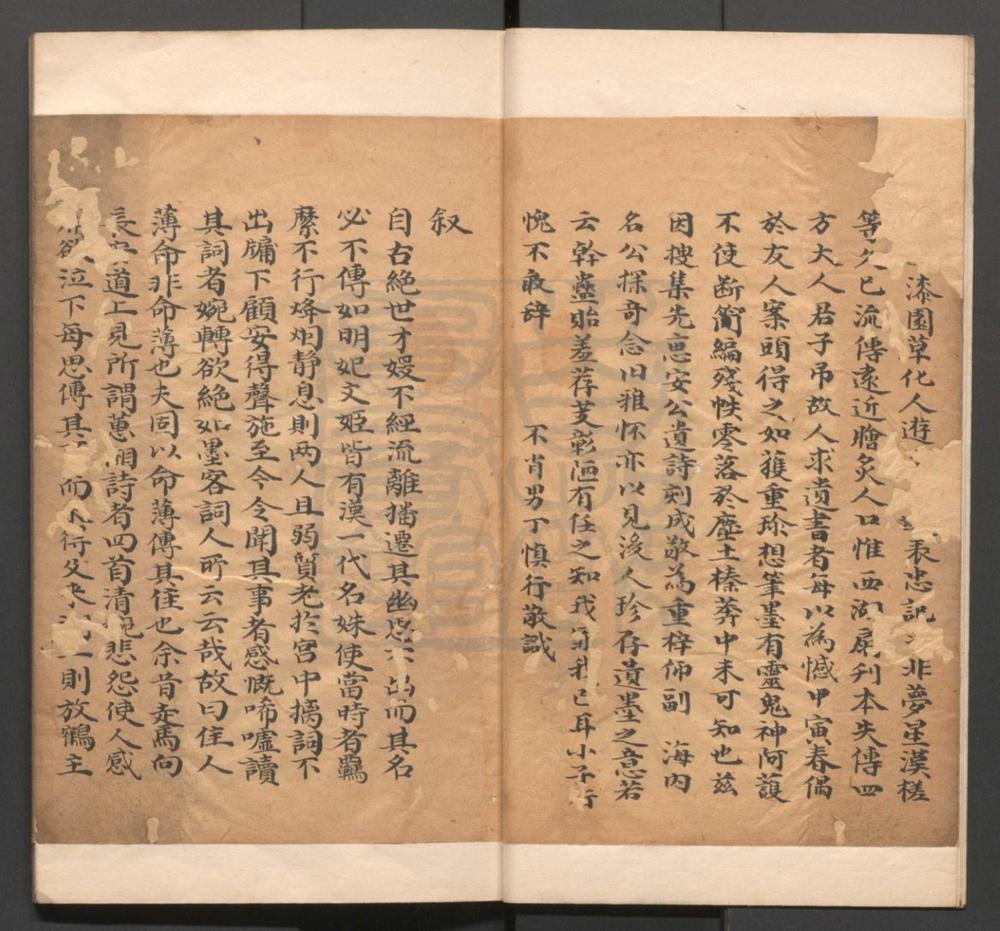 漆園草化人遊 表忠記 非夢星漢槎
等久已流傳遠近膾炙人口惟西湖扇刋本失傳四
方大人君子吊故人求遺書者每以為憾甲寅春偶
於友人案頭得之如獲重珎想筆墨有靈鬼神阿護
不使断簡編殘帙零落於塵土榛莽中未可知也茲
因搜集先惠安公遺詩刻成敬為重梓仰副 海內
名公探奇念旧雅怀亦以見後人珍存遺墨之意若
云幹蠱貽羞荐芰彰陋有任之知我罪我已耳小子行
愧不敢辞 不肖男丁慎行敬識
叙
自古絕世才媛不經流離播遷其幽思不出而其名
必不傳如明妃文姬皆有漢一代名姝使當時者羈
縻不行烽烟静息則两人且弱質老於宮中摛詞不
出牖下顧安得聲施至今令聞其事者感慨唏噓讀
其詞者婉轉欲絕如墨客詞人所云云哉故曰佳人
薄命非命薄也夫固以命薄傳其佳也余昔走馬向
長安道上見所謂蕙湘詩者四首清婉悲怨使人感
欲泣下每思傳其 而不得父來 則放鶴主